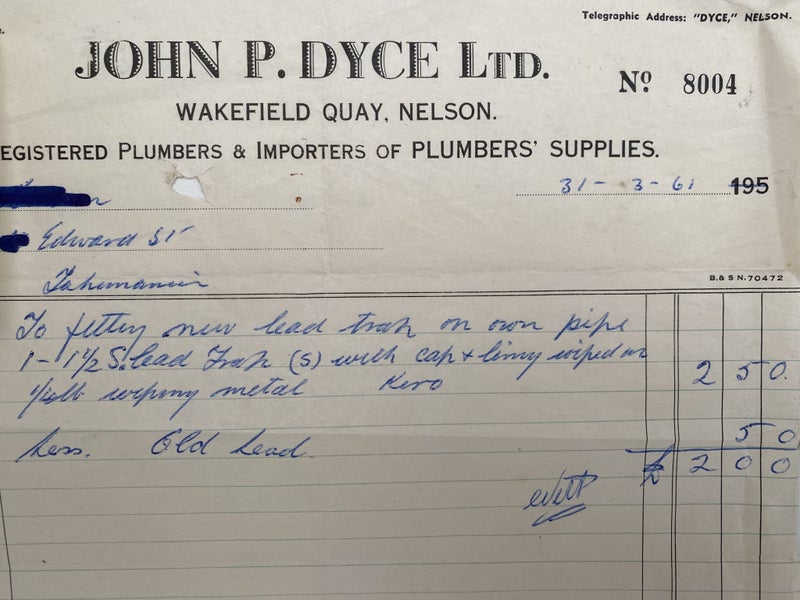 Telegraphic Address: "DYCE," NELSON.
JOHN P. DYCE LTD.
Nº 8004
WAKEFIELD QUAY, NELSON.
EGISTERED PLUMBERS & IMPORTERS OF PLUMBERS' SUPPLIES.
31 - 3 - 61 195
Edward St
Tahunanui
B.& S N.70472
To fitting new lead trap on own pipe
1 - 1 1/2 S. lead Trap (S) with cap & lining wiped on
wiping metal Kero 2 5 0.
5 0
Less. Old Lead.
£ 2 0 0